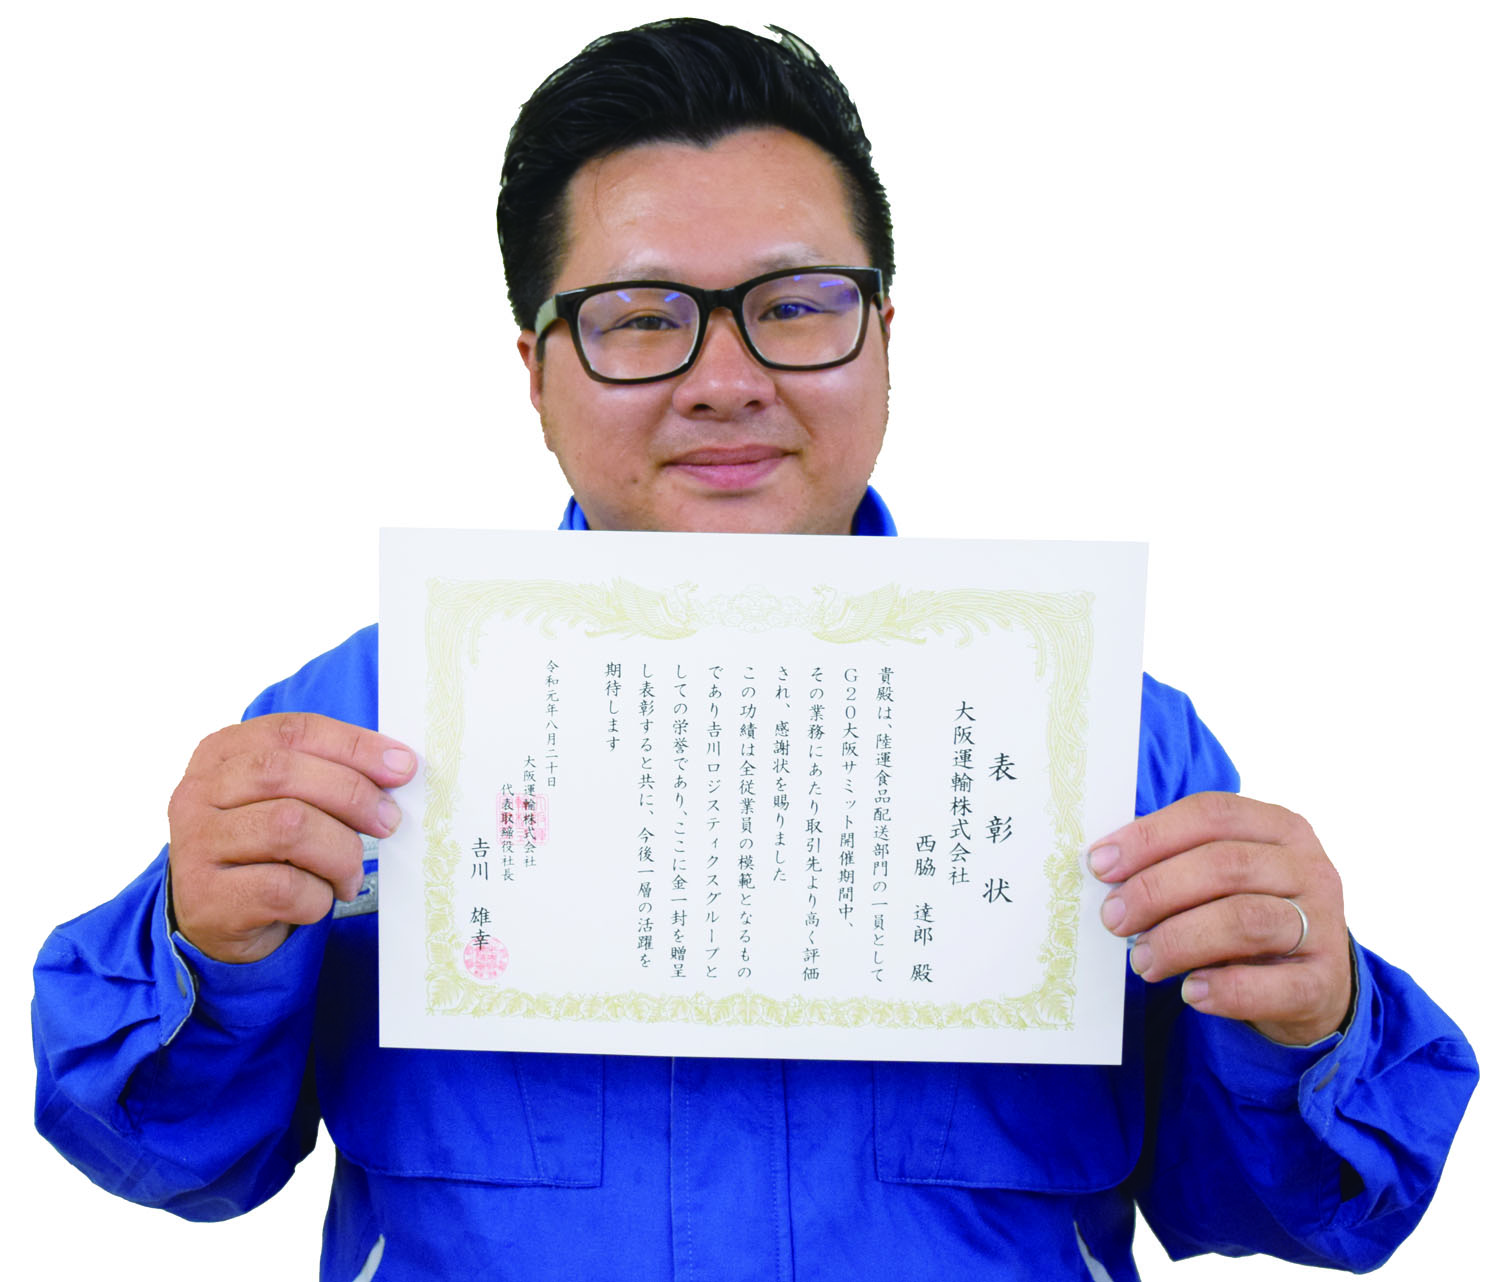 表彰状
大阪運輸株式会社
西脇 達郎 殿
貴殿は、陸運食品配送部門の一員として
G20大阪サミット開催期間中、
その業務にあたり取引先より高く評価
され、感謝状を賜りました
この功績は全従業員の模範となるもの
であり𠮷川ロジスティクスグループと
しての栄誉であり、ここに金一封を贈呈
し表彰すると共に、今後一層の活躍を
期待します
令和元年八月二十日
大阪運輸株式会社
代表取締役社長
𠮷川 雄幸